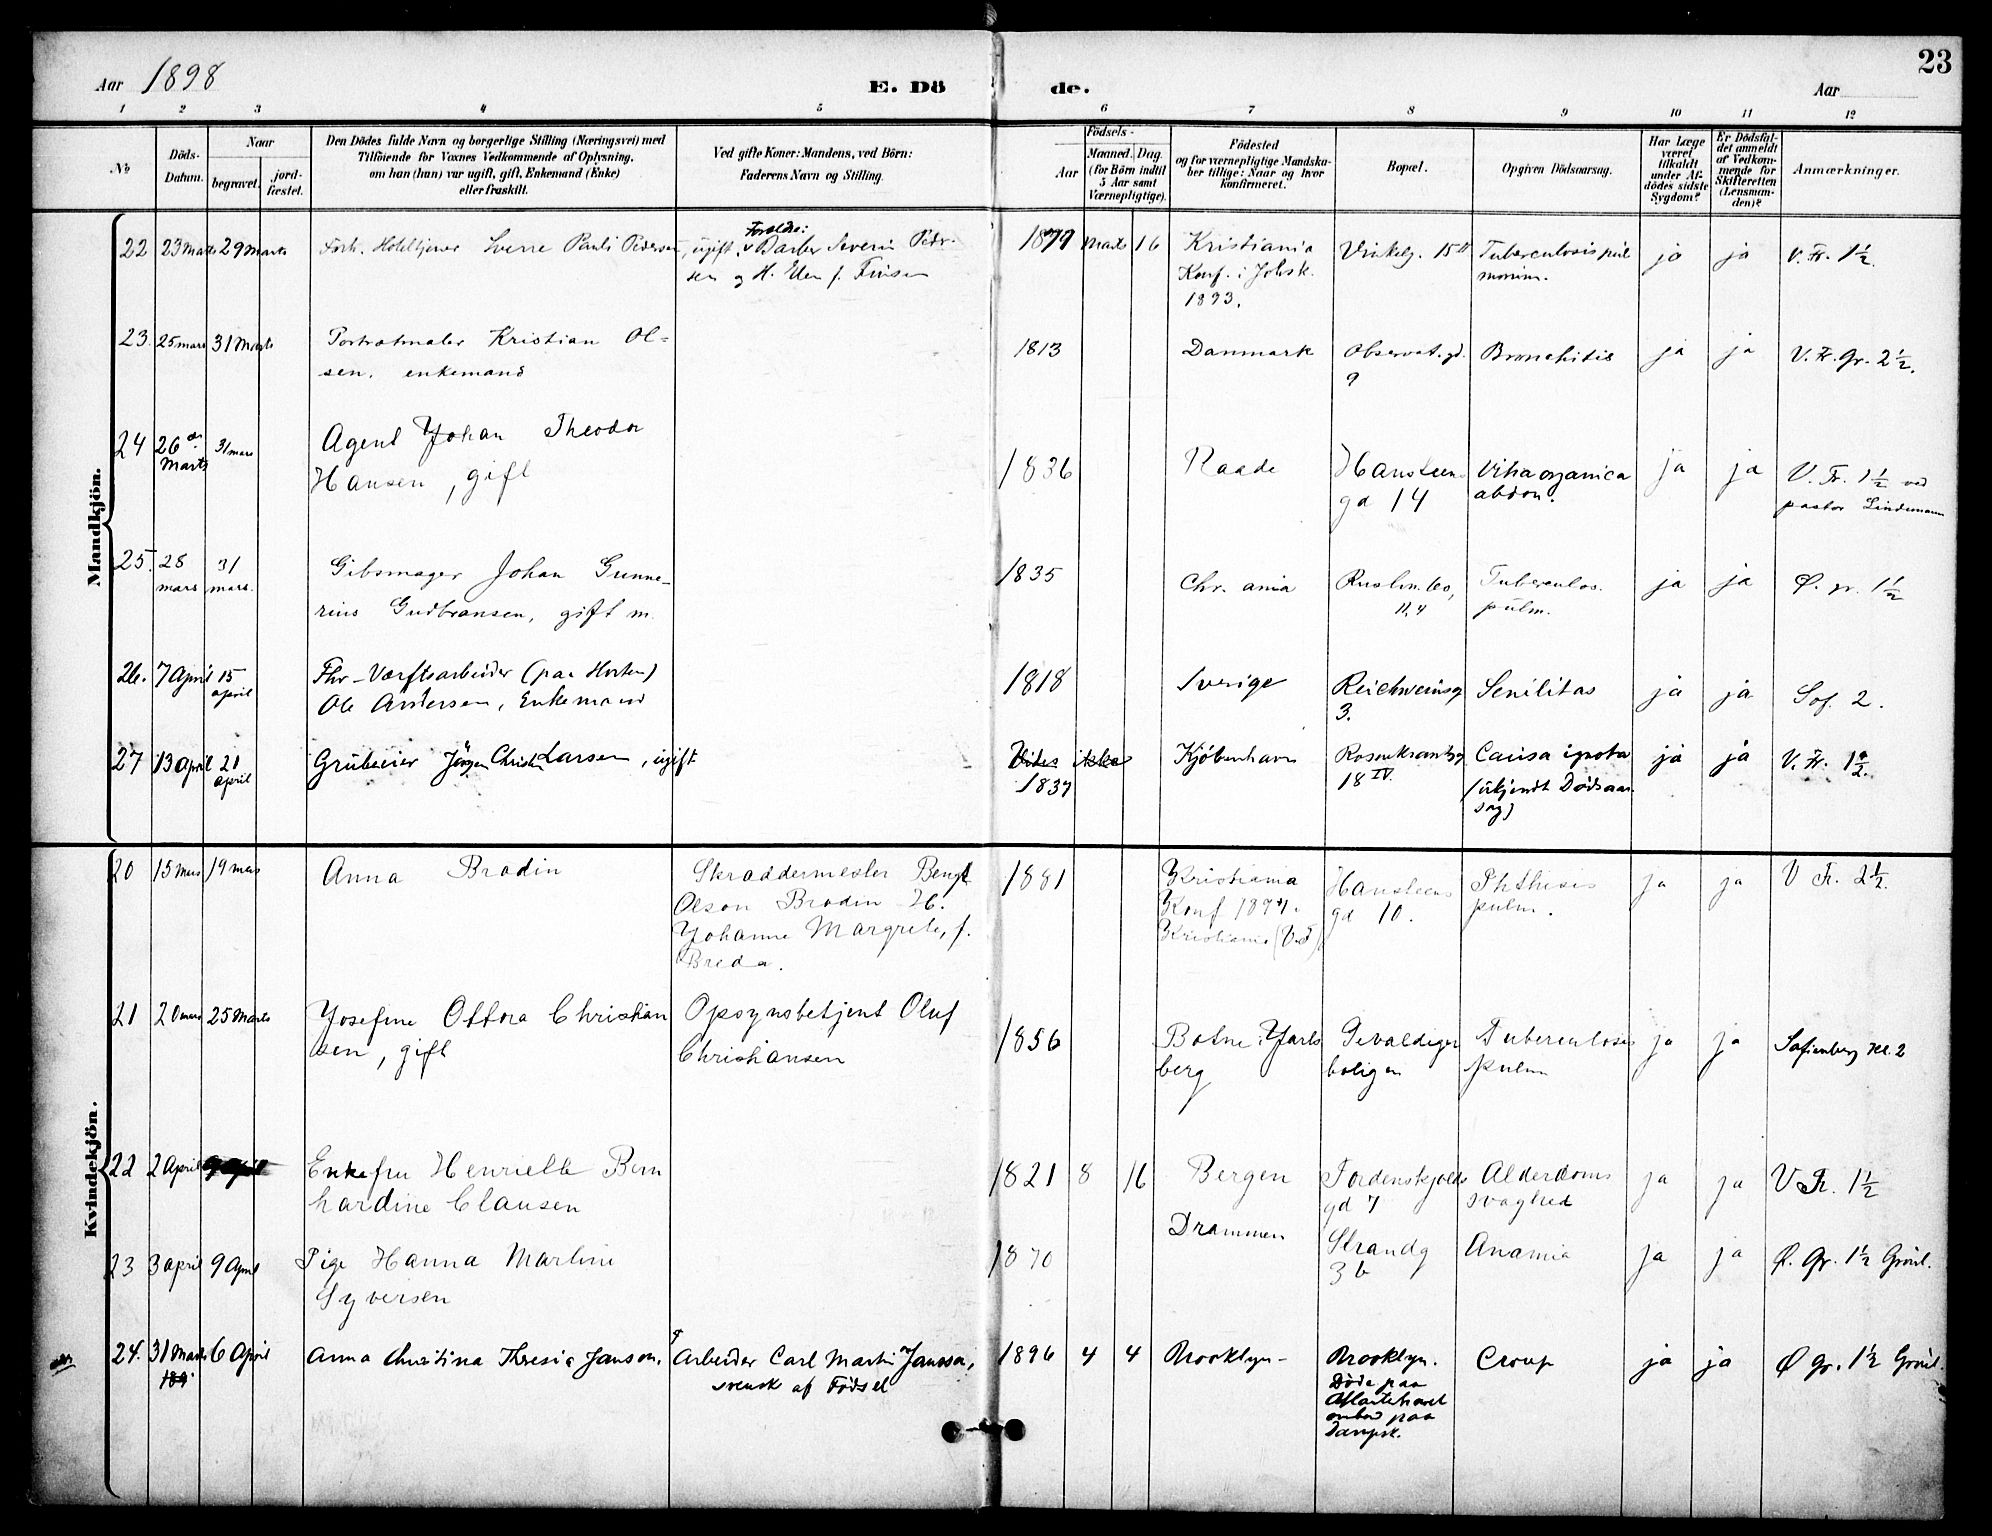 23
Aar 1898
E. Dö de.
Aar
1 2 3 4 5 6 7 8 9 10 11 12
No
Döds-Datum.
Naar
begravet.
jord-fæstet.
Den Dödes fulde Navn og borgerlige Stilling (Næringsvei) med
Tilföiende for Voxnes Vedkommende af Oplysning,
om han (hun) var ugift, gift, Enkemand (Enke)
eller fraskilt.
Ved gifte Koner: Mandens, ved Börn:
Faderens Navn og Stilling.
Födsels-
Aar
Maaned. Dag.
(for Börn indtil
5 Aar samt
Værnepligtige).
Födested
og for værnepligtige Mandska-
ber tillige: Naar og hvor
konfirmeret.
Bopæl.
Opgiven Dödsaarsag.
Har Læge
været
tilkaldt
under Af-
dödes sidste
Sygdom?
Er Dödsfal-
det anmeldt
af Vedkom-
mende for
Skifteretten
(Lensman-
den)?
Anmærkninger.
Mandkjön.
22 23 Marts 29 Marts Forh. Hoteltjener Sverre Pauli Pedersen, ugift. Forældre: Barber Severin Peder- 1877 Marts 16 Kristiania Vinkelg. 15 II Tuberculosis pul ja ja V. Fr. 1½.
sen og H. Elen f. Finsen Konf. i Johsk. monum.
1893.
23. 25 mars 31 Marts Portrætmaler Kristian Ol- 1813 Danmark Observat. gd. Bronchitis ja ja V. Fr. Gr. 2½.
sen. enkemand 9
24 26de 31 mars Agent Johan Theodor 1836 Raade Hansteens Vitia organica ja ja V. Fr. 1½ ved
Marts Hansen, gift gd 14 abdom. pastor Lindemann
25. 28 31 Gibsmager Johan Gunne- 1835 Chr. ania Tuberculos. ja ja Ø. gr. 1½
mars mars. rius Gudbransen, gift m. pulm.
26. 7 April 15 Fhv. Værftsarbeider (paa Horten) 1818 Sverige Reichweinsg Senilitas ja ja Sof. 2.
april Ole Andersen, Enkemand 3.
27 13 April 21 Jörgen Christen Larsen, ugift Vides ikke Kjöbenhavn Rosenkrantzg Causa ignota ja ja V. Fr. 1½.
april 1837 18 IV. (ukjendt Dödsaar-
sag)
Kvindekjön.
20 15 mars 19 mars Anna Brodin Skræddermester Bengt 1881 Kristiania Hansteens Phthisis ja ja V Fr. 2½.
Olson Brodin H. Konf 1897. gd 10. pulm.
Johanne Margrete, f. Kristiania (V.F)
Breda.
21 20 mars 25 Marts Josefine Ottora Christian Opsynsbetjent Oluf 1856 Botne Jarls Gevaldiger Tuberculosis ja ja Sofienberg Kl. 2
sen, gift Christiansen berg boligen pulm
22 2 April 9 April Enkefru Henriette Bern 1821 8 16 Bergen Tordenskjolds Alderdoms ja ja V Fr. 1½
hardine Clausen gd 7 svaghed
23 3 april 9 April Pige Hanna Martine 1870 Drammen Strandg Anæmia ja ja Ø. Gr. 1½ Grönl.
Syversen 3 b
24. 31 Marts 6 April Anna Christina Theresia Janson. Arbeider Carl Martin Jansson, 1896 4 4 Brooklyn- Brooklyn. Croup ja ja Ø Gr. 1½ Grönl.
189 svensk af Födsel Döde paa
Atlanterhavet
ombord paa
Dampsk.